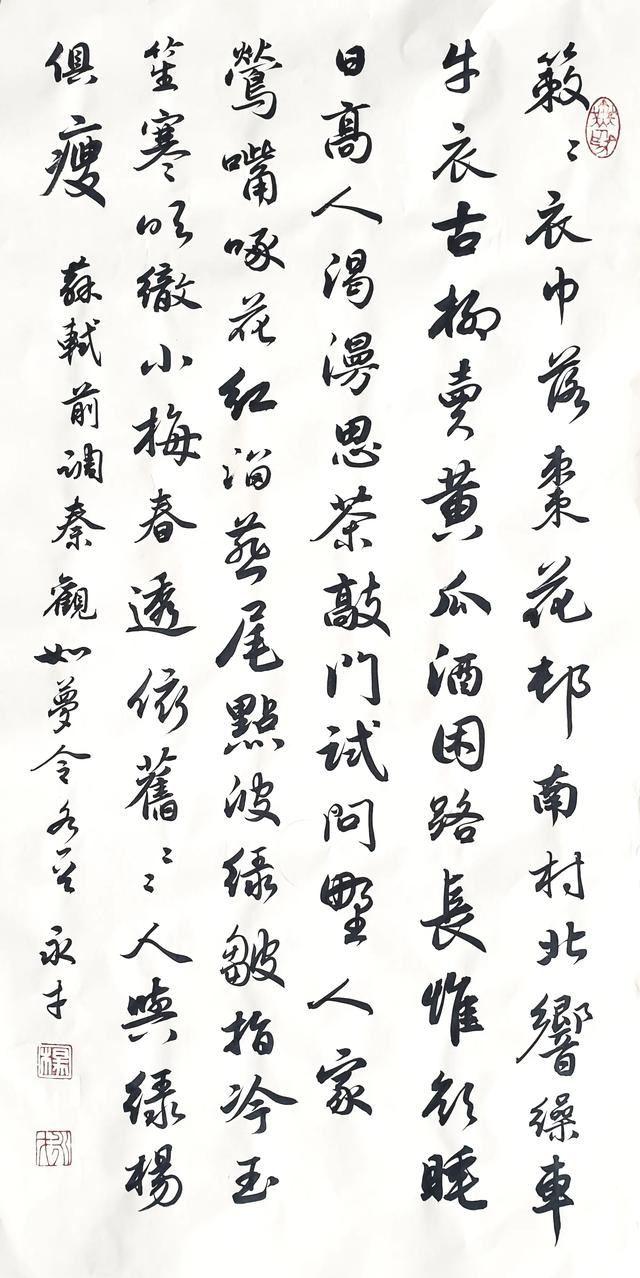 簌〻衣巾落棗花邨南村北響繰車
牛衣古柳賣黄瓜酒困路長惟欲睡
日高人渴漫思茶敲門試問野人家
鶯嘴啄花紅溜燕尾點波緑皺指冷玉
笙寒吹徹小梅春透依舊〻〻人與緑楊
俱瘦 蘇軾前調秦觀如夢令各首 永才